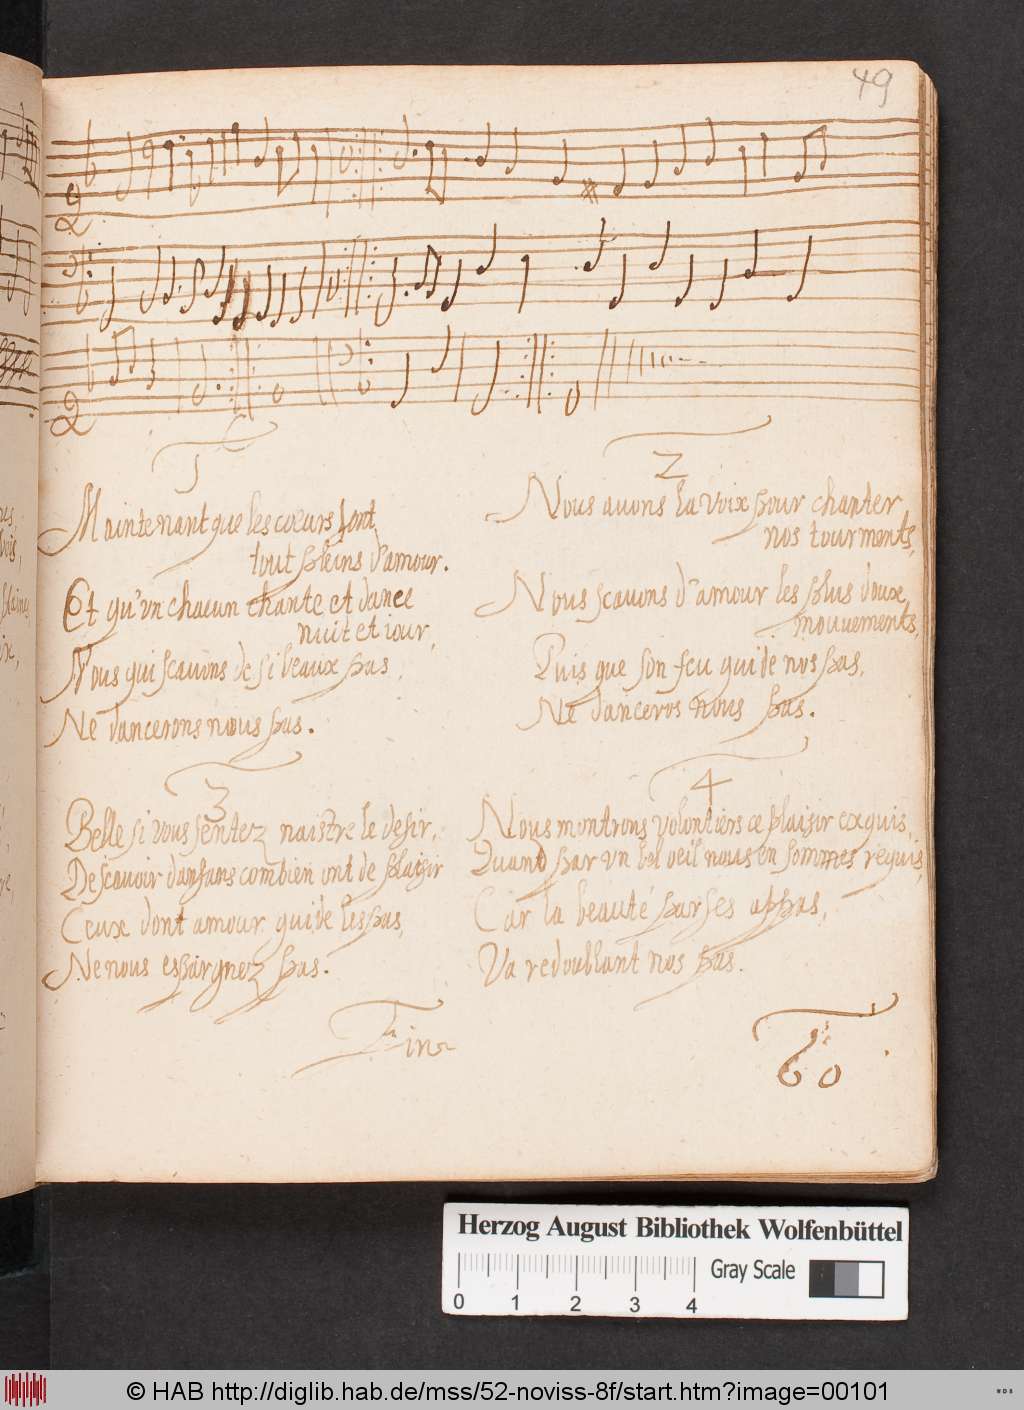 49
1
Maintenant que les cœurs sont
tout pleins d'amour.
Et qu'vn chacun chante et dance
nuit et iour,
Nous qui scauons de si beaux pas,
Ne dancerons nous pas.
2
Nous auons la voix pour chanter
nos tourments,
Nous scauons d'amour les plus doux
mouuements,
Puis que son feu guide nos pas,
Ne danceros nous pas.
3
Belle si vous sentez naistre le desir,
De scauoir dansans combien ont de plaisir
Ceux dont amour guide les pas,
Ne nous espargnez pas.
4
Nous montrons volontiers ce plaisir exquis,
Quand par vn bel oeil nous en sommes requis,
Car la beauté par ses appas,
Va redoublant nos pas.
Fin
Herzog August Bibliothek Wolfenbüttel
Gray Scale
0 1 2 3 4
© HAB http://diglib.hab.de/mss/52-noviss-8f/start.htm?image=00101